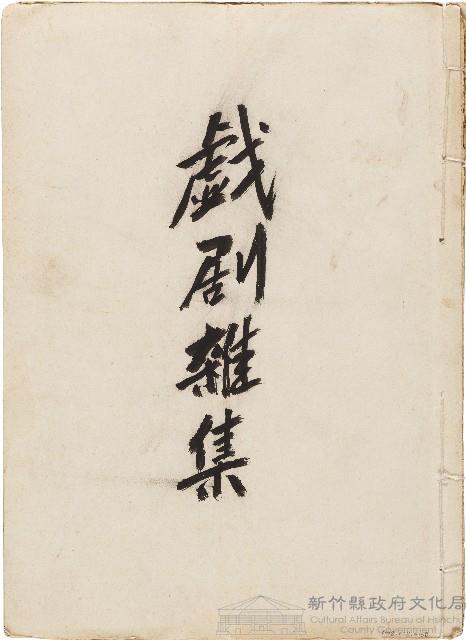 戲剧雜集
新竹縣政府文化局
Cultural Affairs Bureau of Hsinchu
County Government